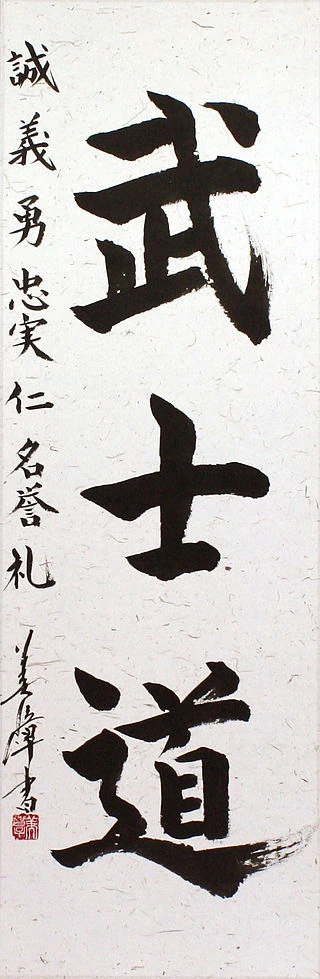 武士道
誠 義 勇 忠実 仁 名誉 礼